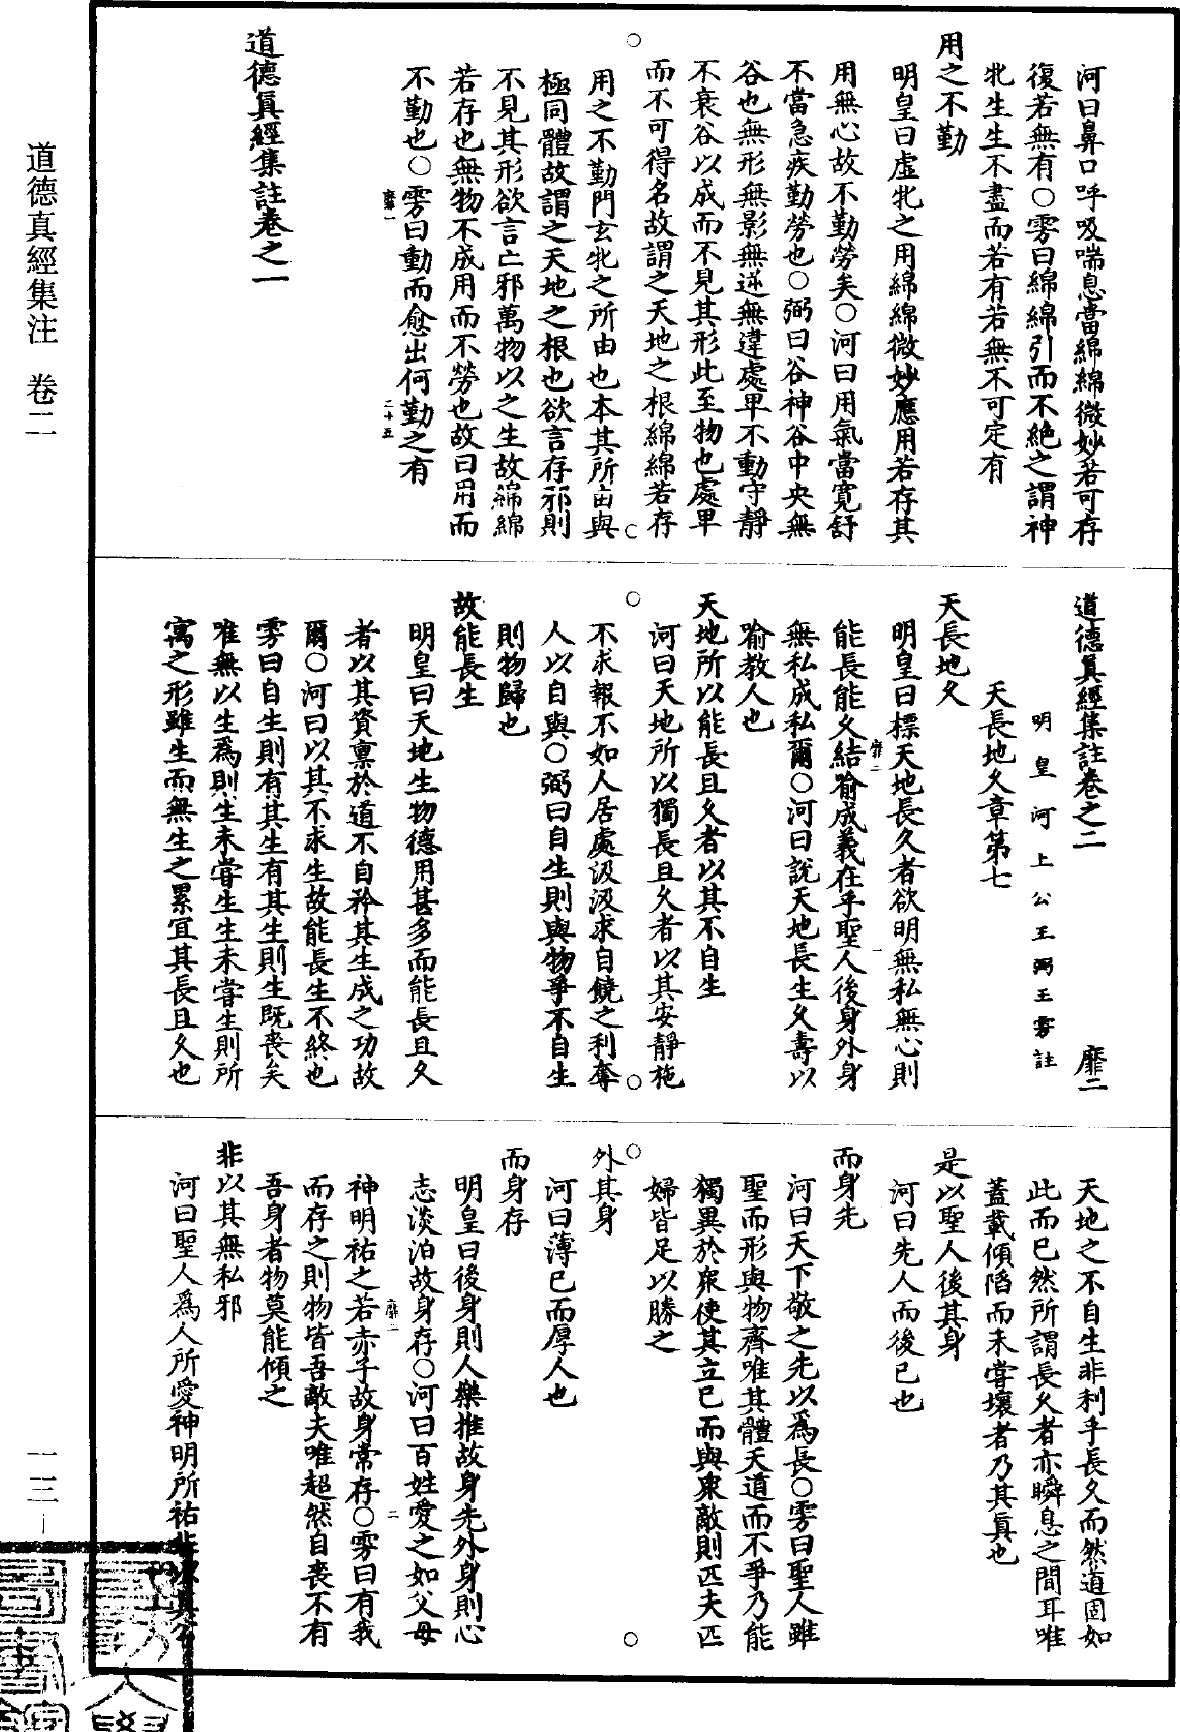 河曰鼻口呼吸喘息當綿綿微妙若可存
復若無有〇雱曰綿綿引而不絶之謂神
牝生生不盡而若有若無不可定有
用之不勤
明皇曰虛牝之用綿綿微妙應用若存其
用無心故不勤勞矣〇河曰用氣當寬舒
不當急疾勤勞也〇弼曰谷神谷中央無
谷也無形無影無逆無違處卑不動守靜
不衰谷以成而不見其形此至物也處卑
而不可得名故謂之天地之根綿綿若存
用之不勤門玄牝之所由也本其所由與
極同體故謂之天地之根也欲言存邪則
不見其形欲言亡邪萬物以之生故綿綿
若存也無物不成用而不勞也故曰用而
不勤也〇雱曰動而愈出何勤之有
靡一
二十五
道德眞經集註卷之一
道德眞經集註卷之二
靡二
明皇河上公王弼王雱註
天長地久章第七
天長地久
明皇曰標天地長久者欲明無私無心則
能長能久結喻成義在乎聖人後身外身
靡二
一
無私成私爾〇河曰說天地長生久壽以
喻教人也
天地所以能長且久者以其不自生
河曰天地所以獨長且久者以其安靜施
不求報不如人居處汲汲求自饒之利奪
人以自與〇弼曰自生則與物爭不自生
則物歸也
故能長生
明皇曰天地生物德用甚多而能長且久
者以其資稟於道不自矜其生成之功故
爾〇河曰以其不求生故能長生不終也
雱曰自生則有其生有其生則生既喪矣
唯無以生爲則生未甞生生未甞生則所
寓之形雖生而無生之累宜其長且久也
天地之不自生非利乎長久而然道固如
此而已然所謂長久者亦瞬息之間耳唯
蓋載傾陷而未甞壞者乃其眞也
是以聖人後其身
河曰先人而後已也
而身先
河曰天下敬之先以爲長〇雱曰聖人雖
聖而形與物齊唯其體天道而不爭乃能
獨異於衆使其立已而與衆敵則匹夫匹
婦皆足以勝之
外其身
河曰薄已而厚人也
而身存
明皇曰後身則人樂推故身先外身則心
志淡泊故身存〇河曰百姓愛之如父母
靡二
二
神明祐之若赤子故身常存〇雱曰有我
而存之則物皆吾敵夫唯超然自喪不有
吾身者物莫能傾之
非以其無私邪
河曰聖人爲人所愛神明所祐非以其公
道德真經集注 卷二
一三—